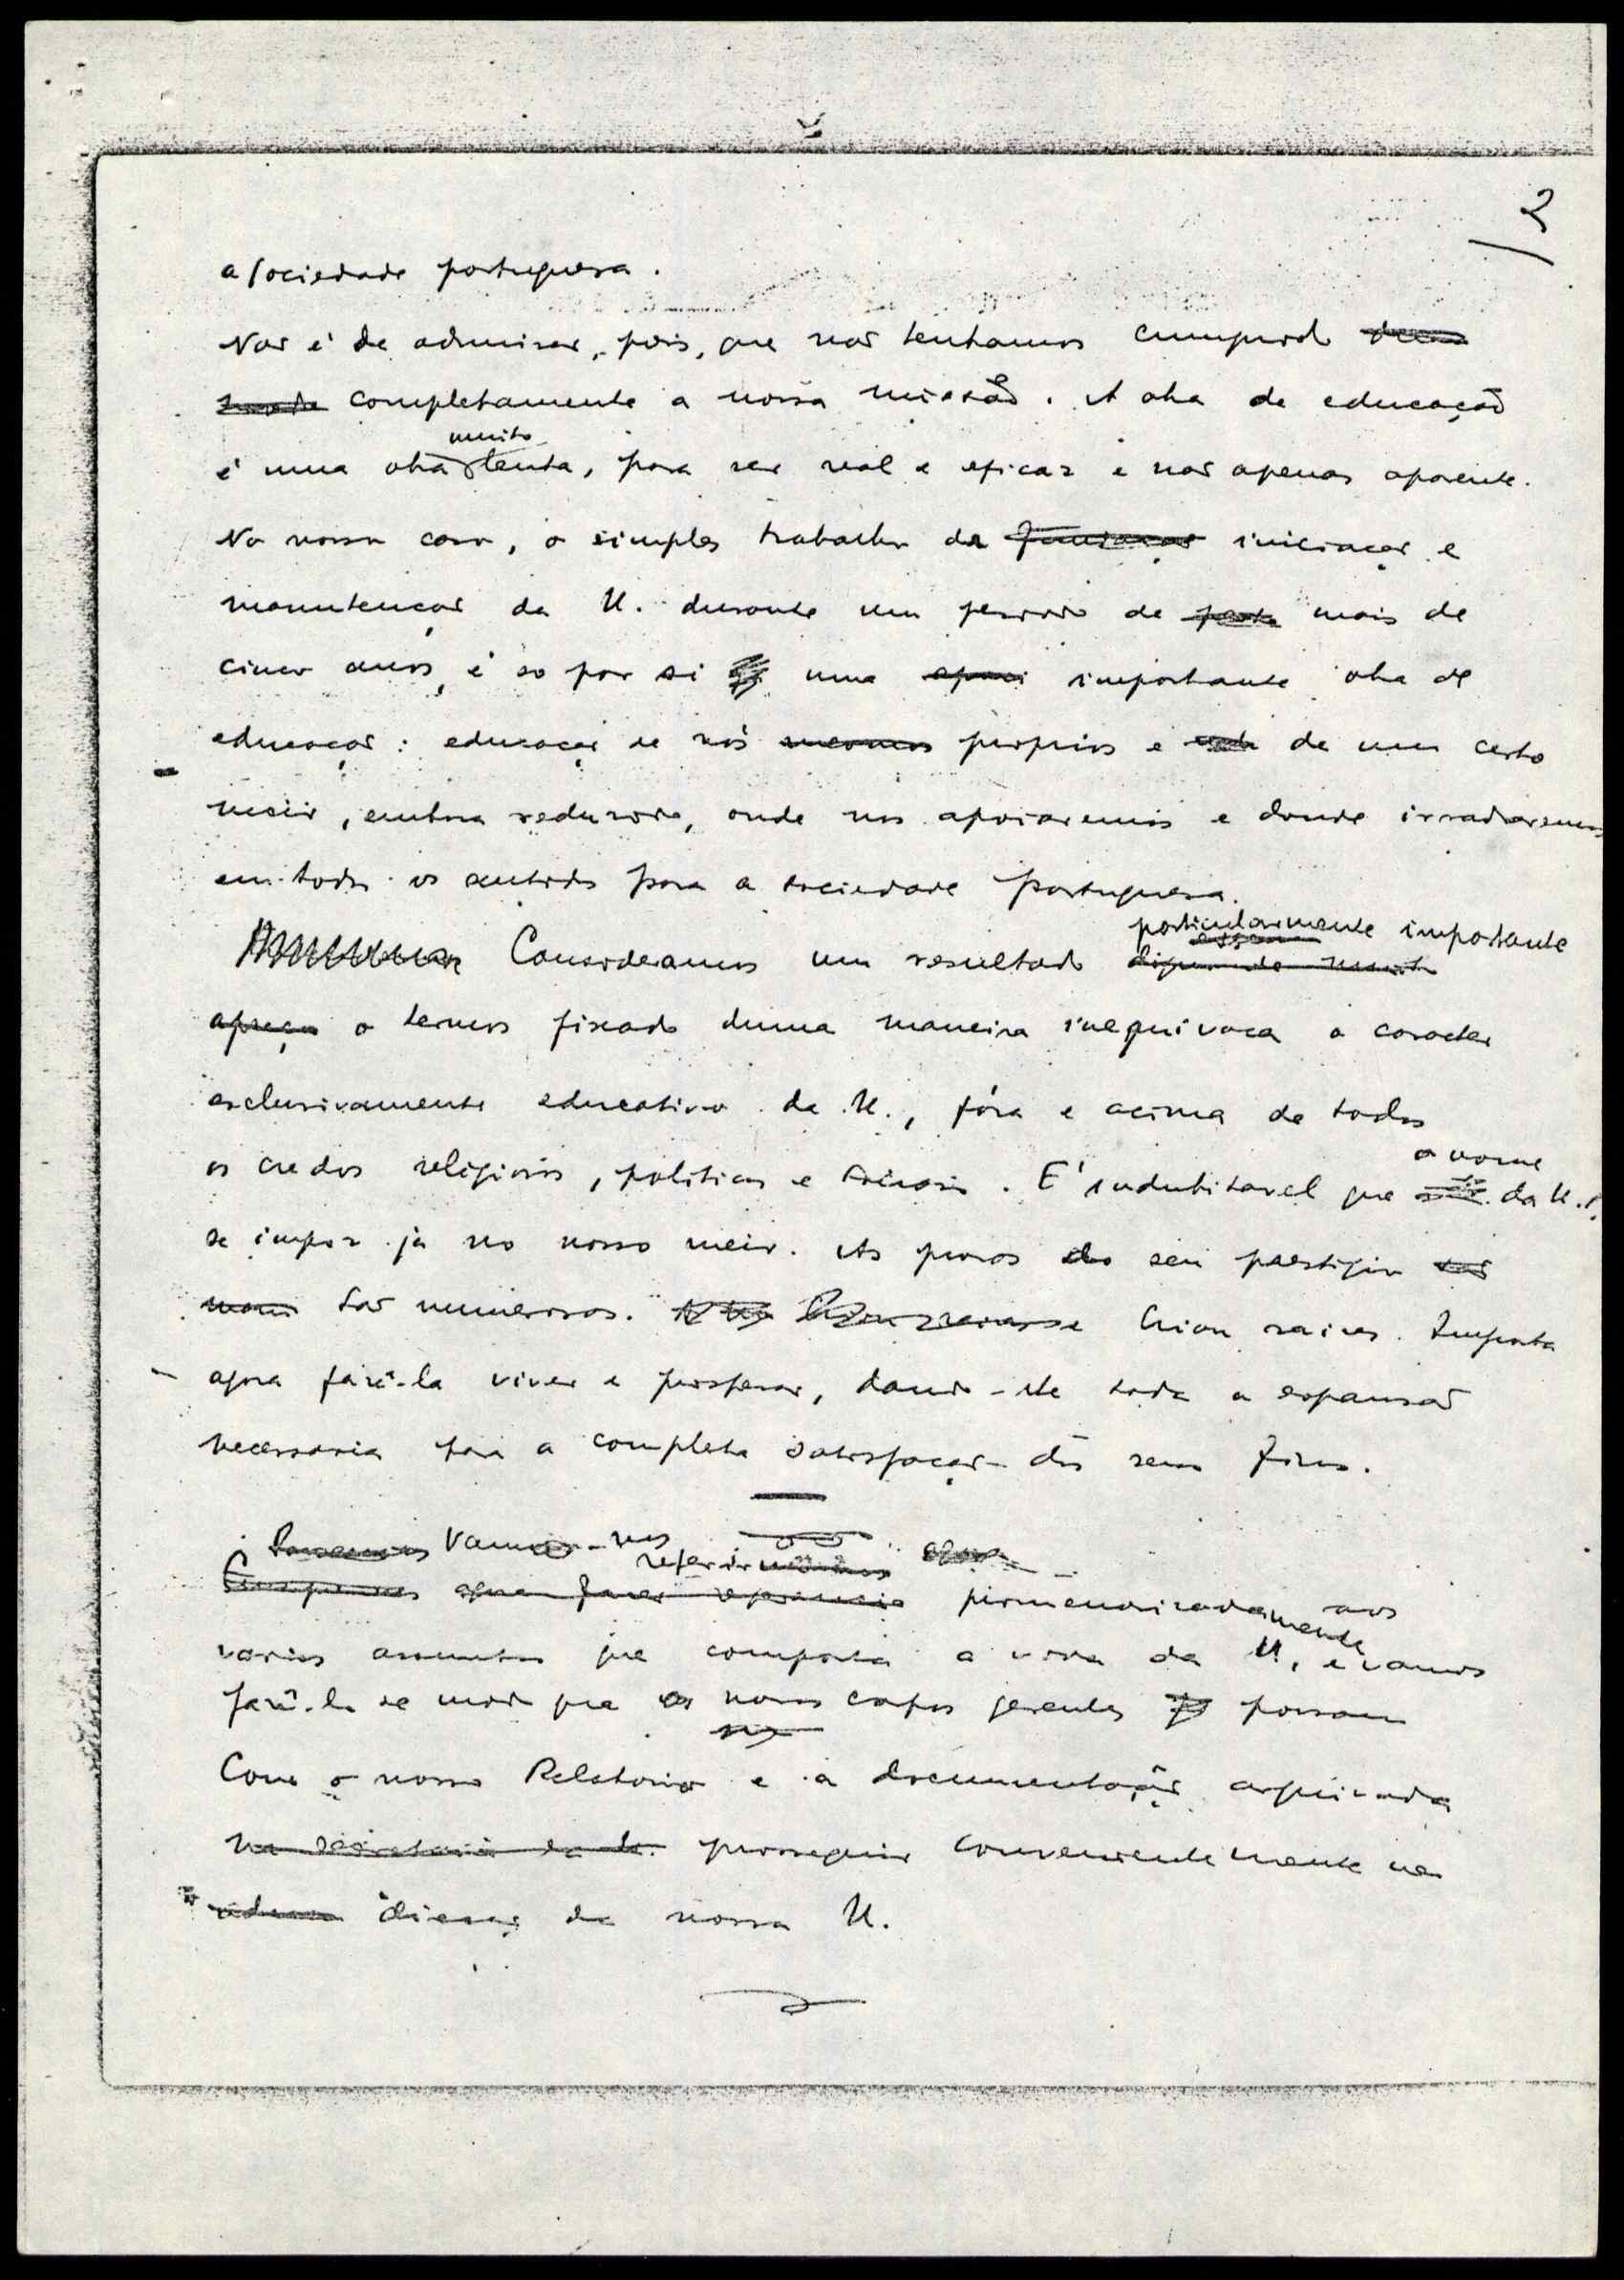 2
a sociedade portuguesa.
Não é de admirar, pois, que não tenhamos cumprido
completamente a nossa missão. A obra de educação
muito
é uma obra lenta, para ser real e eficaz e não apenas aparente.
No nosso caso, o simples trabalho da iniciação e
manutenção da U. durante um periodo de mais de
cinco anos, é só por si uma importante obra de
educação: educação de nós proprios e de um certo
meio, embora reduzido, onde nos apoiaremos e donde irradiaremos
em todos os sentidos para a sociedade portuguesa.
particularmente importante
Consideramos um resultado
o termos fixado duma maneira inequivoca o caracter
exclusivamente educativo da U., fóra e acima de todos
o nome
os credos religiosos, politicos e sociais. E' indubitavel que da U. P.
se impoz já no nosso meio. As provas do seu prestigio
são numerosas. Criou raizes. Importa
agora fazê-la viver e prosperar, dando-lhe toda a expansão
necessaria para a completa satisfação dos seus fins.
Vamos-nos
referir
pormenorizadamente aos
varios assuntos que comporta a vida da U., e vamos
fazê-lo de modo que os novos corpos gerentes possam
Com o nosso Relatorio e a documentação arquivada
prosseguir convenientemente na
da nossa U.